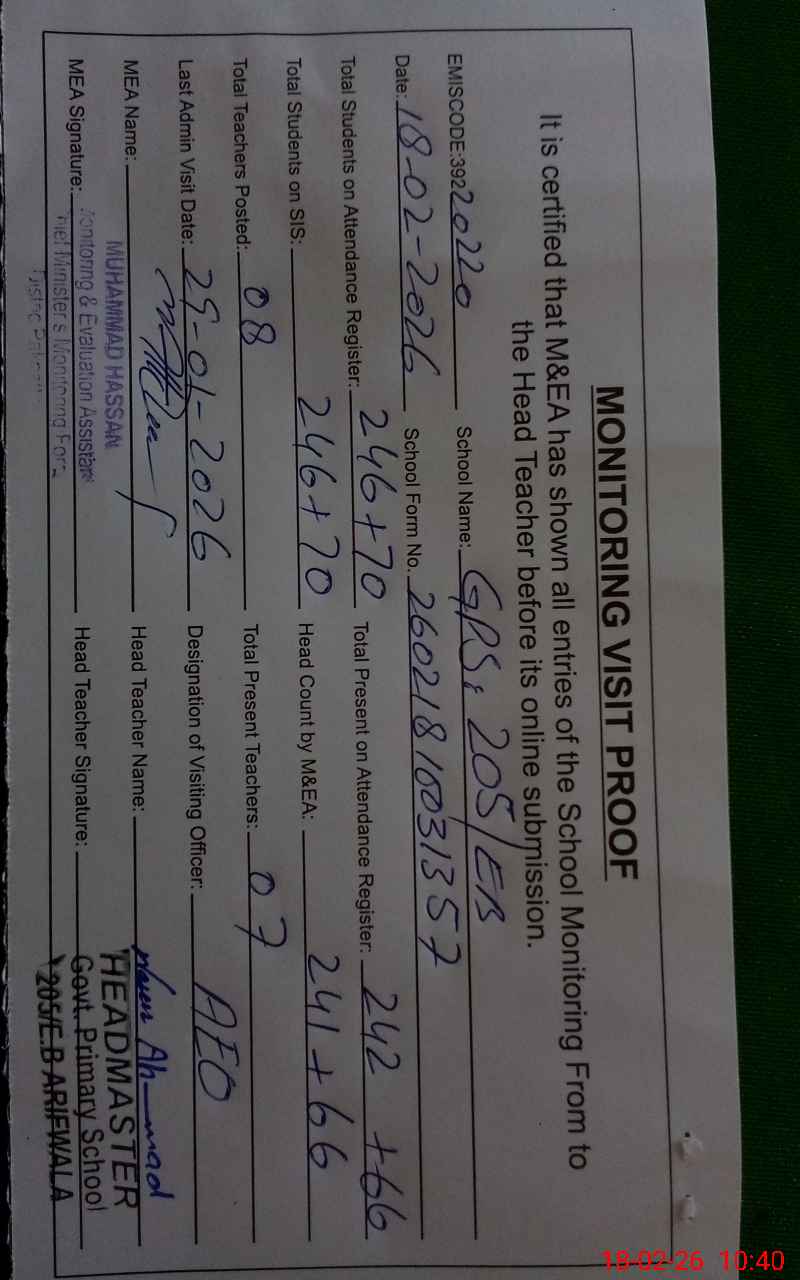 MONITORING VISIT PROOF
It is certified that M&EA has shown all entries of the School Monitoring From to
the Head Teacher before its online submission.
EMISCODE:39220220 School Name: GPS: 205/EB
Date: 18-02-2026 School Form No. 26021810031357
Total Students on Attendance Register: 246+70 Total Present on Attendance Register: 242 +66
Total Students on SIS: 246+70 Head Count by M&EA: 241+66
Total Teachers Posted: 08 Total Present Teachers: 07
Last Admin Visit Date: 29-01-2026 Designation of Visiting Officer: AEO
MEA Name: Head Teacher Name: Ahmad
MUHAMMAD HASSAN
HEADMASTER
MEA Signature: Monitoring & Evaluation Assistan Head Teacher Signature: Govt. Primary School
Minister's Monitoring Forc
205/E.B ARIFWALA
18-02-26 10:40